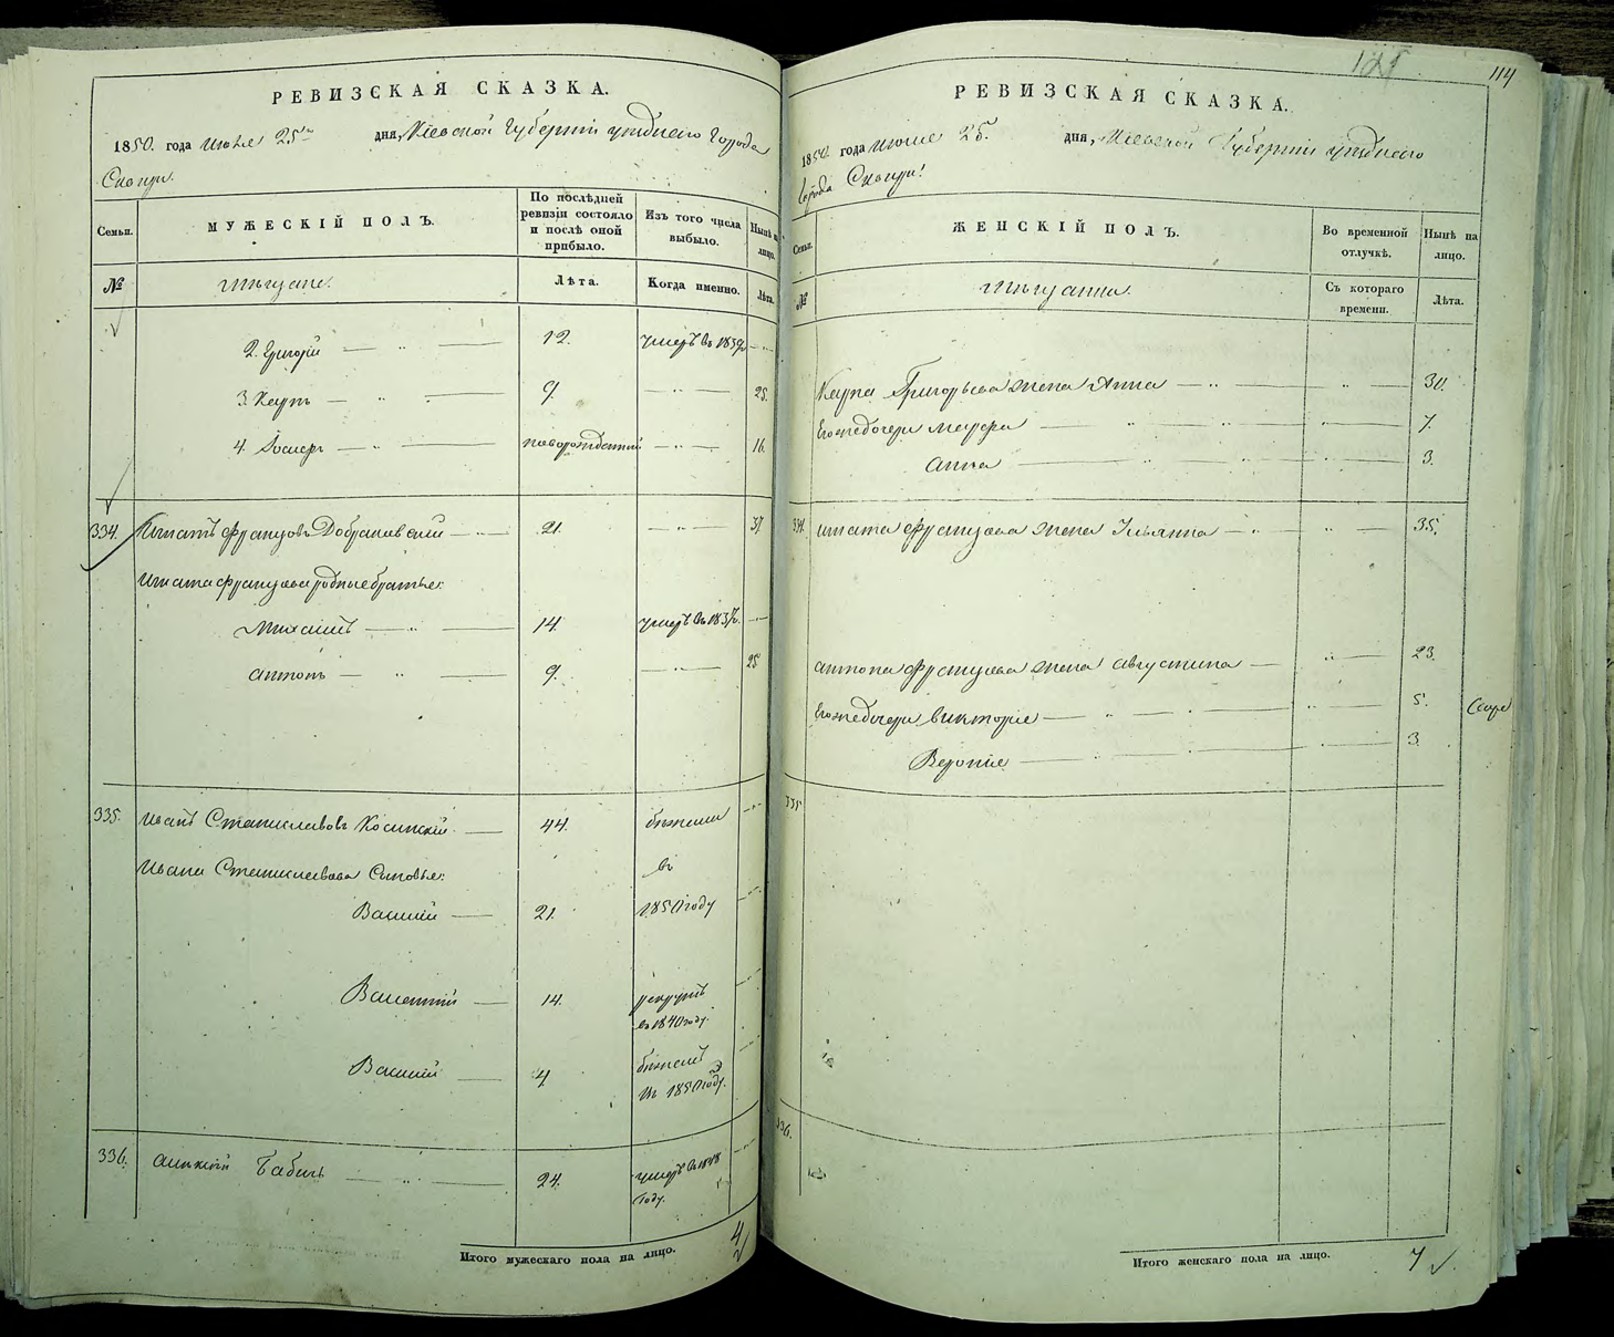 РЕВИЗСКАЯ СКАЗКА.
1850. года Июля 25го дня, Кіевской Губерніи уѣзднаго Города
Сквири.
Семьи.
МУЖЕСКІЙ ПОЛЪ.
По послѣдней ревизіи состояло и послѣ оной прибыло.
Изъ того числа выбыло.
Нынѣ на лицо.
№
Мѣщане.
Лѣта.
Когда именно.
Лѣта.
2. Григорій — „ — 12. умеръ въ 1839г — „
3. Карпъ — „ — 9. — „ — 25.
4. — „ — новорожденный — „ — 16.
334. Игнатъ Францовъ — „ — 21. — „ — 37
Игната Францова родные братья:
Михаилъ — „ — 14. умеръ въ 1837г. — „
Антонъ — „ — 9. — „ — 25
335. Иванъ Станиславовъ Косинскій — 44. бѣжали — „
Ивана Станиславова Сыновья: въ
Василій — 21. 1850 году — „
Валентій — 14. рекрутъ — „
въ 1840 году.
Василій — 4 бѣжалъ — „
въ 1850 году.
336. Бабичъ — „ — 24. умеръ въ 1848 — „
году.
Итого мужескаго пола на лицо. 4
121
114
РЕВИЗСКАЯ СКАЗКА.
1850. года Июля 25. дня, Кіевской Губерніи уѣзднаго
Города Сквири.
Семьи.
ЖЕНСКІЙ ПОЛЪ.
Во временной отлучкѣ.
Нынѣ на лицо.
№
Мѣщанки.
Съ котораго времени.
Лѣта.
Карпа Григорьева жена Анна — „ — „ — 30.
Его же дочери — „ — „ — 7.
Анна — „ — „ — 3.
334. Игната Францова жена Ульянна — „ — „ — 35.
Антона Францова жена Августина — „ — 23.
Его же дочери Викторія — „ — „ — 5.
Веронія — „ — 3.
335
336.
Итого женскаго пола на лицо. 7